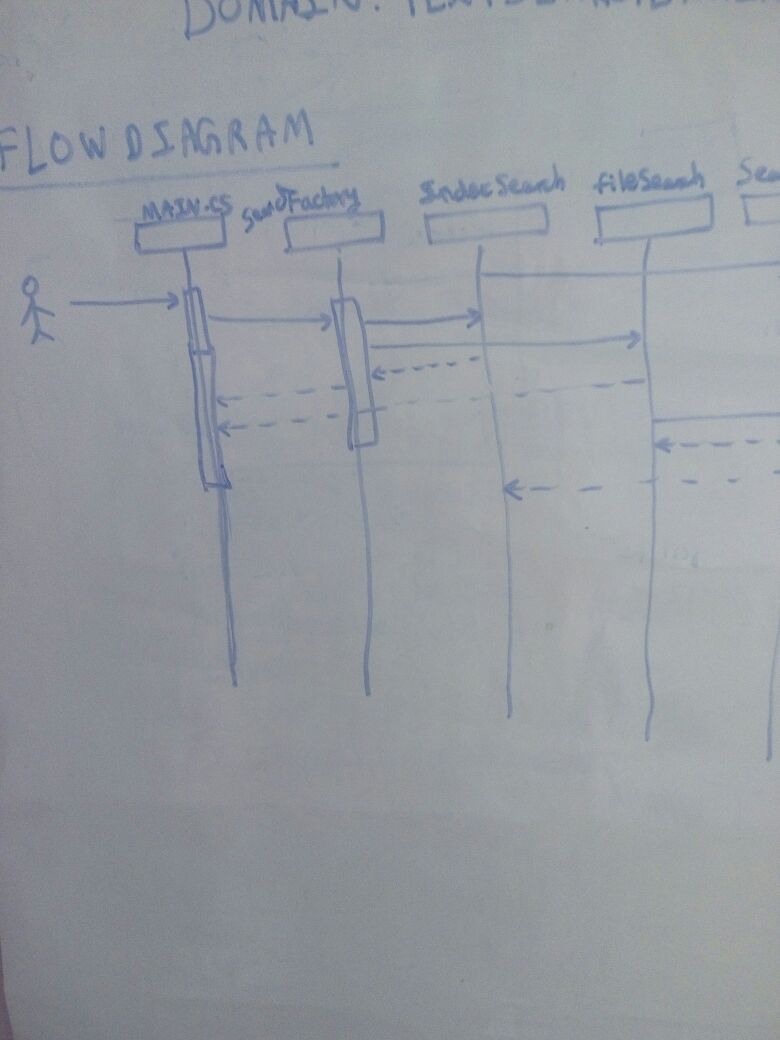 DOMAIN:
FLOW DIAGRAM
MAIN.CS Factory IndexSearch fileSearch Sea